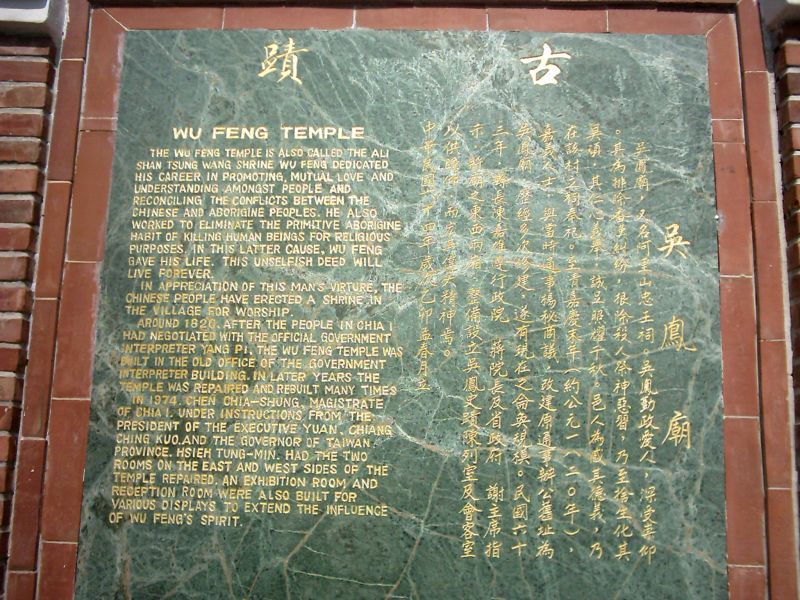 古蹟
吳鳳廟
吳鳳廟,又名阿里山忠王祠。吳鳳勤政愛人,深受崇仰
。其為排除番糾紛,根除殺人祭神惡習,乃至捨生化其
冥頑,其仁心義舉,誠足照耀千秋。邑人為感其德義,乃
在該村立祠奉祀。至清嘉慶末年(約公元一八二○年),
嘉義人士,與當時通事楊秘商議,改建原通事辦公舊址為
吳鳳廟,歷經多次修建,遂有現在之侖奐規模。民國六十
三年,縣長陳嘉雄遵行政院 蔣院長及省政府 謝主席指
示,將廟之東西兩廂,整備設立吳鳳史蹟陳列室及會客室
以供瞻仰,而宏吳鳳精神焉。
中華民國六十四年歲次乙卯孟春月立
WU FENG TEMPLE
THE WU FENG TEMPLE IS ALSO CALLED THE ALI
SHAN TSUNG WANG SHRINE WU FENG DEDICATED
HIS CAREER IN PROMOTING, MUTUAL LOVE AND
UNDERSTANDING AMONGST PEOPLE AND
RECONCILING THE CONFLICTS BETWEEN THE
CHINESE AND ABORIGINE PEOPLES. HE ALSO
WORKED TO ELIMINATE THE PRIMITIVE ABORIGINE
HABIT OF KILLING HUMAN BEINGS FOR RELIGIOUS
PURPOSES. IN THIS LATTER CAUSE, WU FENG
GAVE HIS LIFE. THIS UNSELFISH DEED WILL
LIVE FOREVER.
IN APPRECIATION OF THIS MAN'S VIRTURE, THE
CHINESE PEOPLE HAVE ERECTED A SHRINE IN
THE VILLAGE FOR WORSHIP.
AROUND 1820, AFTER THE PEOPLE IN CHIA I
HAD NEGOTIATED WITH THE OFFICIAL GOVERNMENT
INTERPRETER YANG PI, THE WU FENG TEMPLE WAS
BUILT IN THE OLD OFFICE OF THE GOVERNMENT
INTERPRETER BUILDING. IN LATER YEARS THE
TEMPLE WAS REPAIRED AND REBUILT MANY TIMES
IN 1974, CHEN CHIA-SHUNG, MAGISTRATE
OF CHIA I, UNDER INSTRUCTIONS FROM THE
PRESIDENT OF THE EXECUTIVE YUAN, CHIANG
CHING KUO, AND THE GOVERNOR OF TAIWAN
PROVINCE, HSIEH TUNG-MIN, HAD THE TWO
ROOMS ON THE EAST AND WEST SIDES OF THE
TEMPLE REPAIRED. AN EXHIBITION ROOM AND
RECEPTION ROOM WERE ALSO BUILT FOR
VARIOUS DISPLAYS TO EXTEND THE INFLUENCE
OF WU FENG'S SPIRIT.